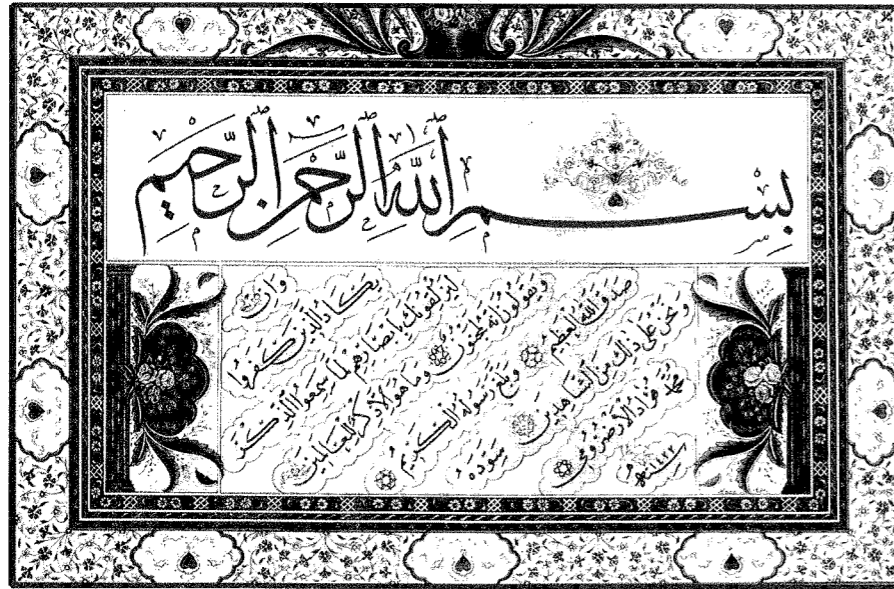 بِسْمِ اللهِ الرَّحْمٰنِ الرَّحِيمِ
وَاِنْ
يَكَادُ الَّذِينَ كَفَرُوا
لَيُزْلِقُونَكَ بِاَبْصَارِهِمْ لَمَّا سَمِعُوا الذِّكْرَ
وَيَقُولُونَ اِنَّهُ لَمَجْنُونٌ وَمَا هُوَ اِلَّا ذِكْرٌ لِلْعَالَمِينَ
صَدَقَ اللهُ الْعَظِيمُ وَبَلَّغَ رَسُولُهُ الْكَرِيمُ
وَنَحْنُ عَلٰى ذٰلِكَ مِنَ الشَّاهِدِينَ سَوَّدَهُ
محمد الارضرومي